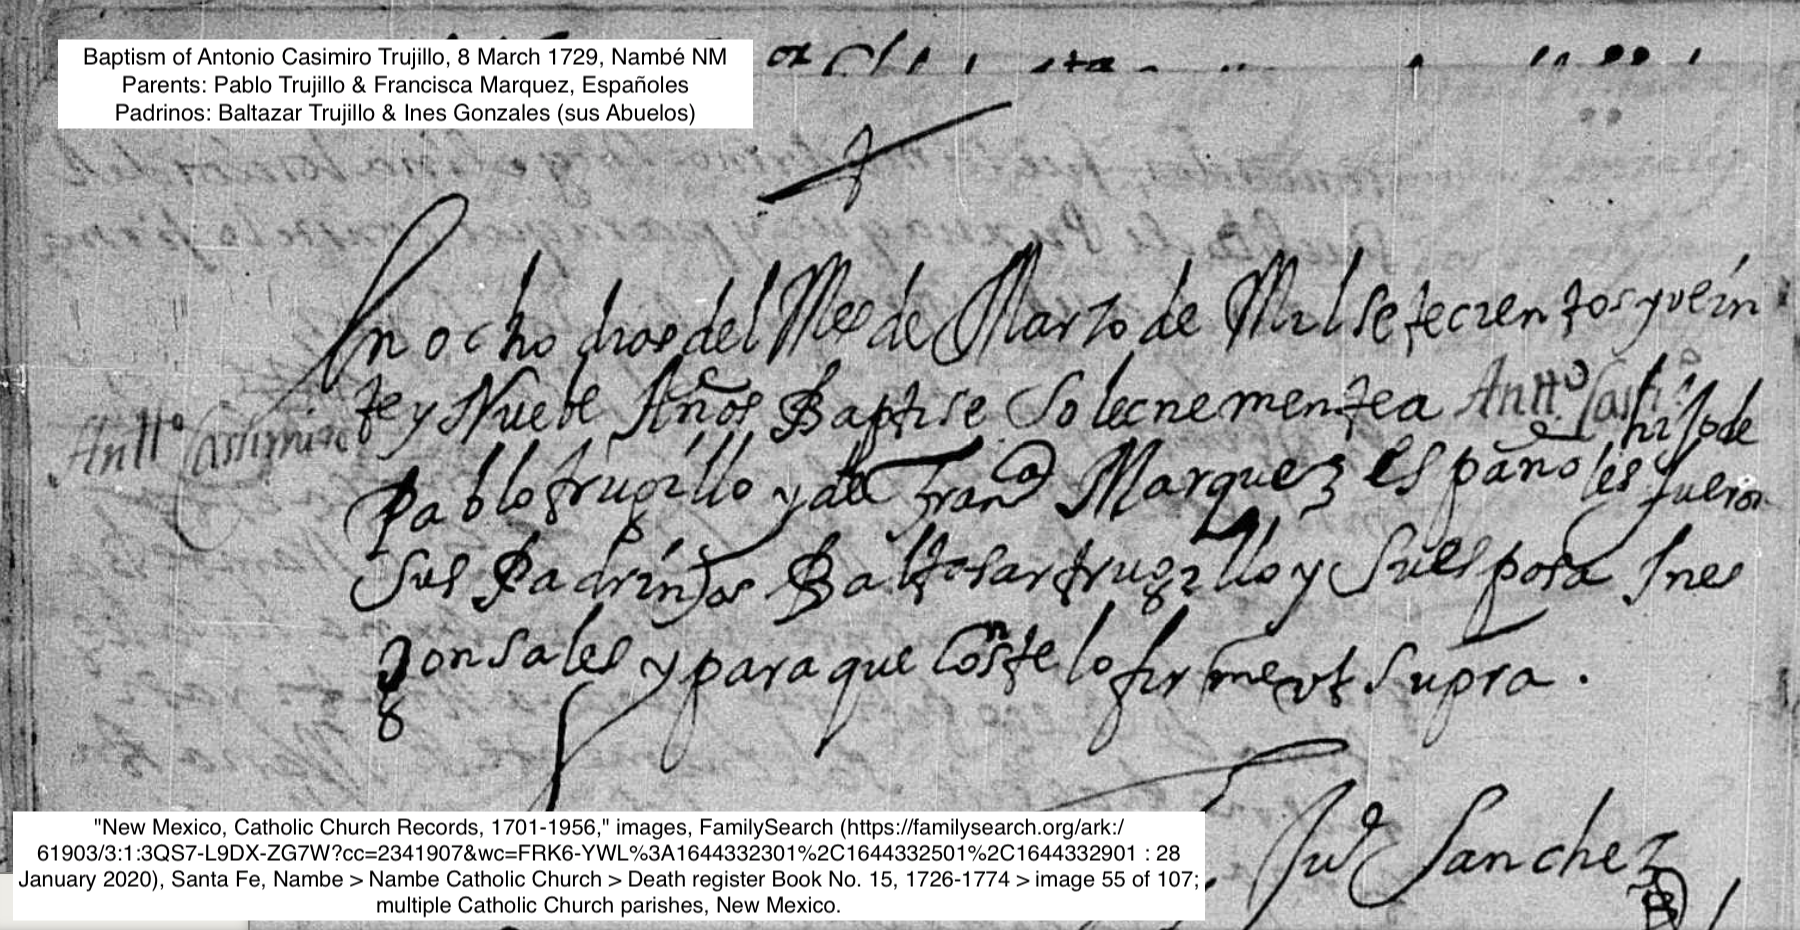 Baptism of Antonio Casimiro Trujillo, 8 March 1729, Nambé NM
Parents: Pablo Trujillo & Francisca Marquez, Españoles
Padrinos: Baltazar Trujillo & Ines Gonzales (sus Abuelos)
En ocho dias del Mes de Marzo de Mil setecientos y vein
te y Nuebe Años Baptise Solecnemente a Antt.º Casi.º hijo de
Antt.º Casimiro
Pablo trugillo y de Fran.ca Marquez españoles fueron
sus Padrinos Baltasar trugillo y su esposa Ines
gonsales y para que Conste lo firme ut supra.
"New Mexico, Catholic Church Records, 1701-1956," images, FamilySearch (https://familysearch.org/ark:/
61903/3:1:3QS7-L9DX-ZG7W?cc=2341907&wc=FRK6-YWL%3A1644332301%2C1644332501%2C1644332901 : 28
January 2020), Santa Fe, Nambe > Nambe Catholic Church > Death register Book No. 15, 1726-1774 > image 55 of 107;
multiple Catholic Church parishes, New Mexico.
Sanchez